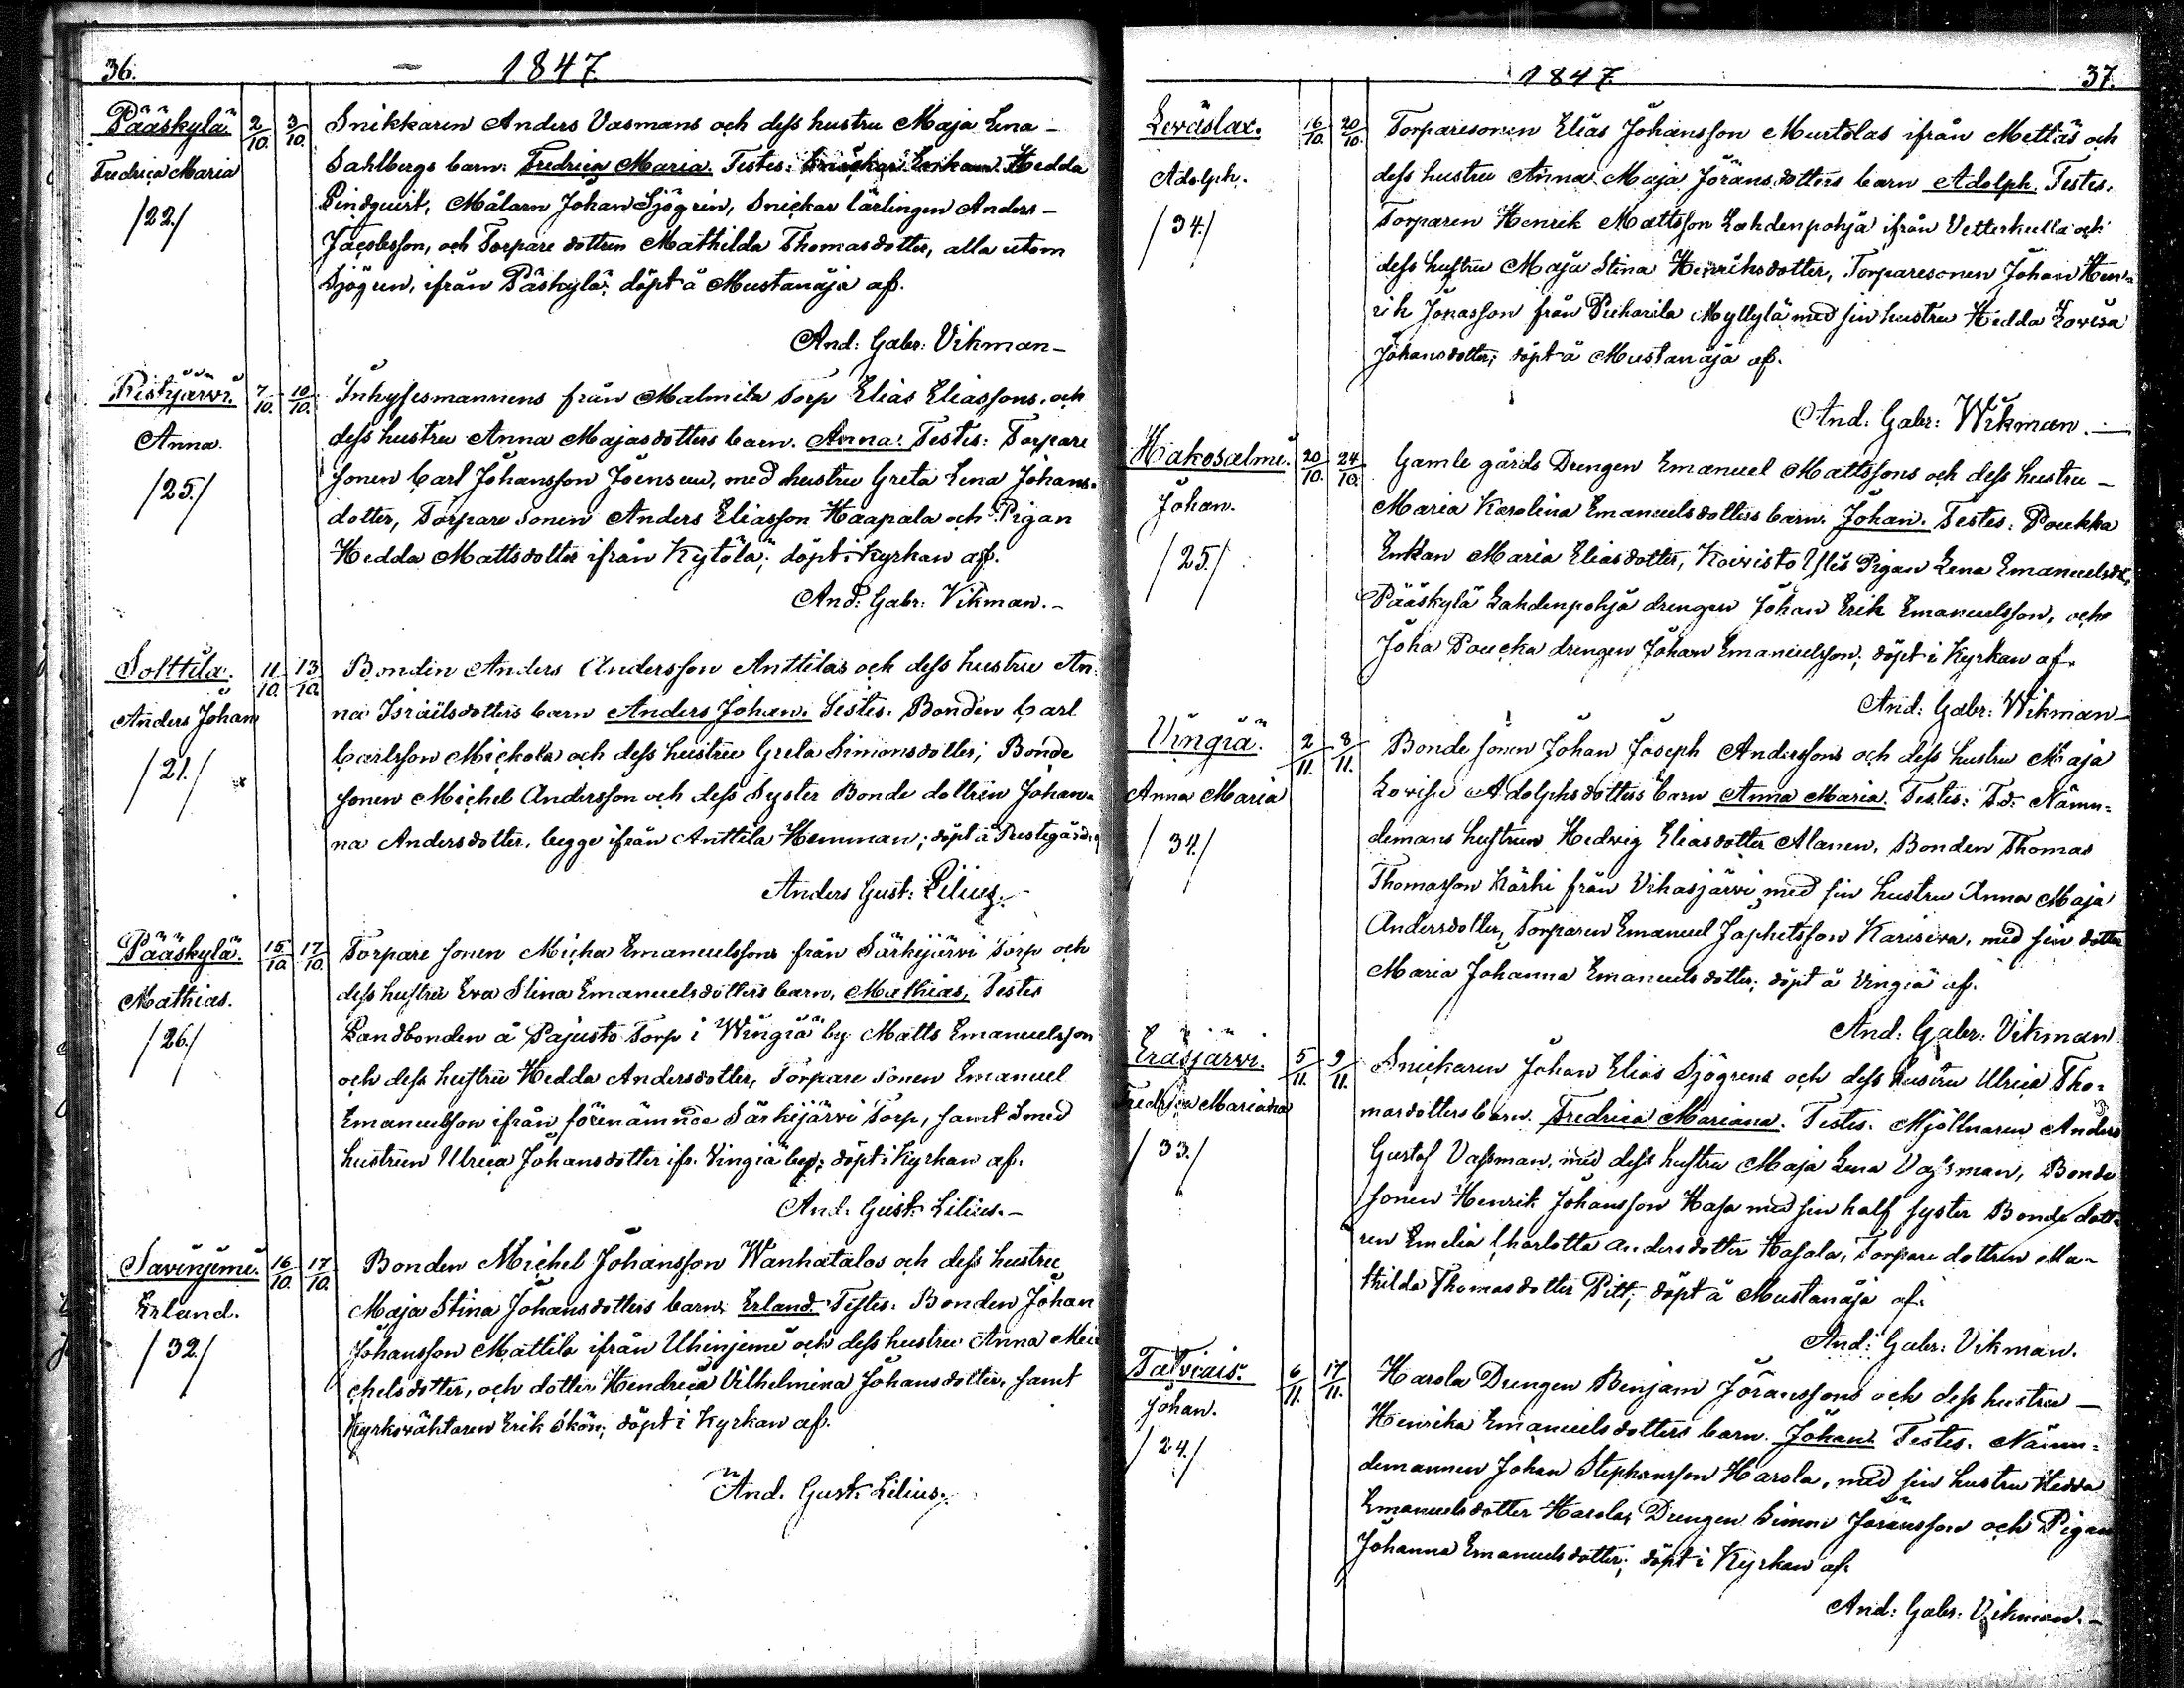 36.
1847
Pääskylä 2/10. 3/10. Snikkaren Anders Vasmans och dess hustru Maja Lena
Fredrica Maria Sahlbergs barn: Fredrica Maria. Testes: Enkan Hedda
/22./ Lindquist, Målarn Johan Sjögrin, Snickar lärlingen Anders
Jacobsson, och Torpare dottren Mathilda Thomasdotter, alla utom
Sjögren, ifrån Pääskylä; döpt å Mustanäja af.
And: Gabr: Vikman
Ristijärvi. 7/10. 10/10. Inhysesmannens från Malmila Torp Elias Eliassons och
Anna. dess hustru Anna Majasdotters barn. Anna. Testes: Torpare
/25./ sonen Carl Johansson Joensuu, med hustru Greta Lena Johans-
dotter, Torpare sonen Anders Eliasson Haapala och Pigan
Hedda Mattsdotter ifrån Kytölä; döpt i Kyrkan af.
And: Gabr: Vikman.
Solttila. 11/10. 13/10. Bonden Anders Andersson Anttilas och dess hustru An-
Anders Johan na Israelsdotters barn Anders Johan. Testes. Bonden Carl
/21./ Carlsson Mickola och dess hustru Greta Simonsdotter; Bonde
sonen Michel Andersson och dess Syster Bonde dottren Johan-
na Andersdotter, begge ifrån Anttila Hemman; döpt å Prestegården
Anders Gust: Lilius.
Pääskylä. 15/10. 17/10. Torpare sonen Micha Emanuelssons från Särkijärvi Torp och
Mathias. dess hustru Eva Stina Emanuelsdotters barn, Mathias, Testes
/26./ Landbonden å Pajusto Torp i Wingiä by Matts Emanuelsson
och dess hustru Hedda Andersdotter, Torpare sonen Emanuel
Emanuelsson ifrån förenämnde Särkijärvi Torp, samt Smed
hustrun Ulrica Johansdotter ifr. Vingiä by; döpt i Kyrkan af.
And. Gust: Lilius.
Savinjemi. 16/10. 17/10. Bonden Michel Johansson Wanhatalos och dess hustru
Erland. Maja Stina Johansdotters barn Erland Testes: Bonden Johan
/32./ Johansson Mattila ifrån Uhinjemi och dess hustru Anna Mi-
chelsdotter, och dotter Hendrica Vilhelmina Johansdotter, samt
Kyrkoväktaren Erik Skön; döpt i Kyrkan af.
And. Gust: Lilius.
1847
37.
Leväslax. 16/10. 20/10. Torparesonen Elias Johansson Murtolas ifrån Mettäs och
Adolph. dess hustru Anna Maja Jöransdotters barn Adolph. Testes.
/34./ Torparen Henrik Mattsson Lahdenpohja ifrån Vetterkulla och
dess hustru Maja Stina Henriksdotter, Torparesonen Johan Hen-
rik Jonasson från Puharila Myllylä med sin hustru Hedda Lovisa
Johansdotter; döpt å Mustanäja af.
And: Gabr: Wikman.
Hakosalmi. 20/10. 24/10. Gamle gårds Drengen Emanuel Mattssons och dess hustru
Johan. Maria Karolina Emanuelsdotters barn. Johan. Testes: Poukka
/25./ Enkan Maria Eliasdotter, Koivisto Pigan Lena Emanuelsdr,
Pääskylä Lahdenpohja drengen Johan Erik Emanuelsson, och
Joha Poucka drengen Johan Emanuelsson; döpt i Kyrkan af.
And: Gabr: Wikman
Vingiä. 2/11. 8/11. Bonde sonen Johan Joseph Anderssons och dess hustru Maja
Anna Maria Lovisa Adolphsdotters barn Anna Maria. Testes: F.d. Nämn-
/34./ demans hustrun Hedvig Eliasdotter Alanen, Bonden Thomas
Thomasson Kärki från Vihasjärvi med sin hustru Anna Maja
Andersdotter, Torparen Emanuel Japhetsson Karisiva, med sin dotter
Maria Johanna Emanuelsdotter; döpt å Vingiä af.
And: Gabr: Vikman
Eräsjärvi. 5/11. 9/11. Snickaren Johan Elias Sjögrens och dess hustru Ulrica Tho-
Fredrica Mariana masdotters barn. Fredrica Mariana. Testes. Mjöllnaren Anders
/33./ Gustaf Vassman, med dess hustru Maja Lena Vassman, Bonde
sonen Henrik Johansson Hasa med sin half syster Bonde dott-
ren Emelia Charlotta Andersdotter Hasala, Torpare dottren Ma-
thilda Thomasdotter Pitt; döpt å Mustanäja af.
And: Gabr: Vikman.
Talviais. 6/11. 17/11. Harola Drengen Benjam Jöranssons och dess hustru
Johan. Henrika Emanuelsdotters barn. Johan. Testes. Nämn-
/24./ demannen Johan Stephansson Harola, med sin hustru Hedda
Emanuelsdotter Harola, Drengen Simon Jöransson och Pigan
Johanna Emanuelsdotter; döpt i Kyrkan af.
And: Gabr: Vikman.